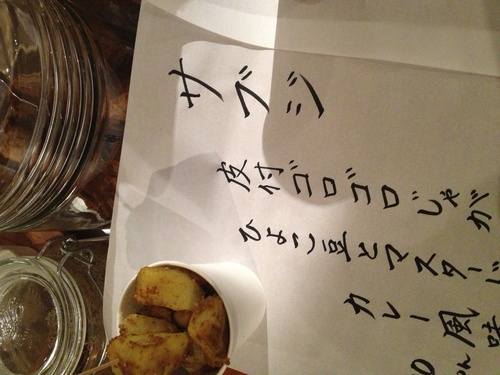 サブジ
皮付ゴロゴロじゃが
ひよこ豆とマスタード
カレー風味